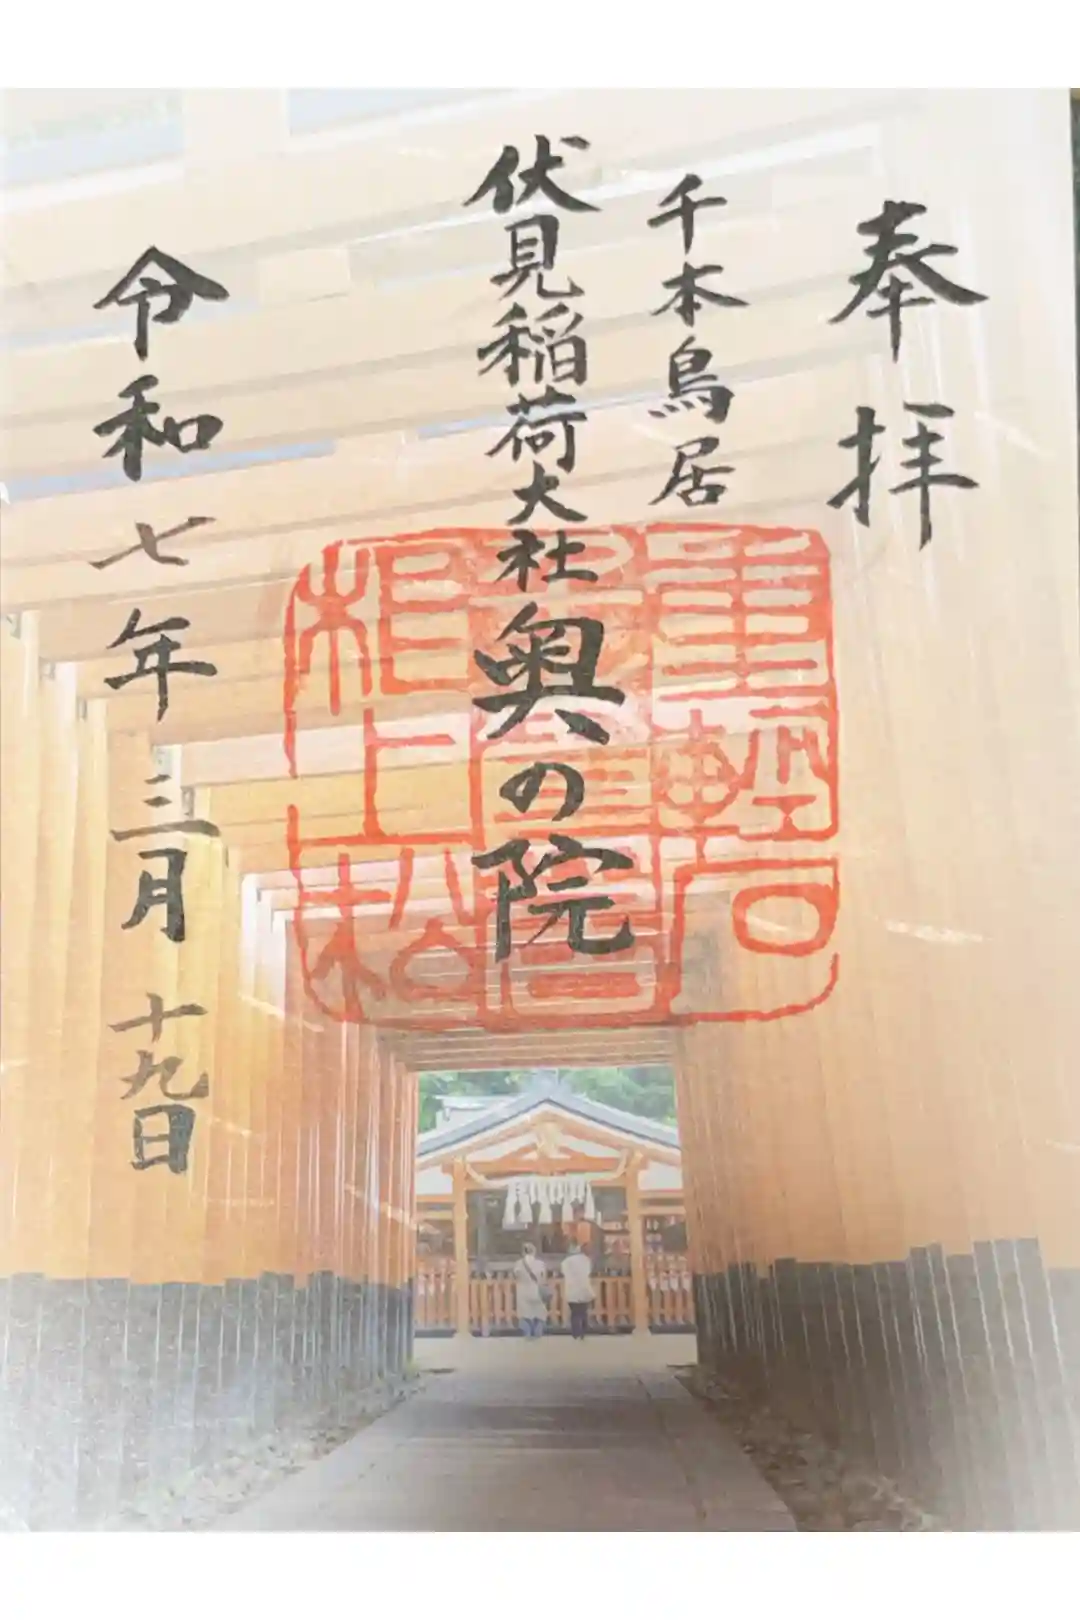 奉拝
千本鳥居
伏見稲荷大社奥の院
令和七年三月十九日
重軽石
相上松